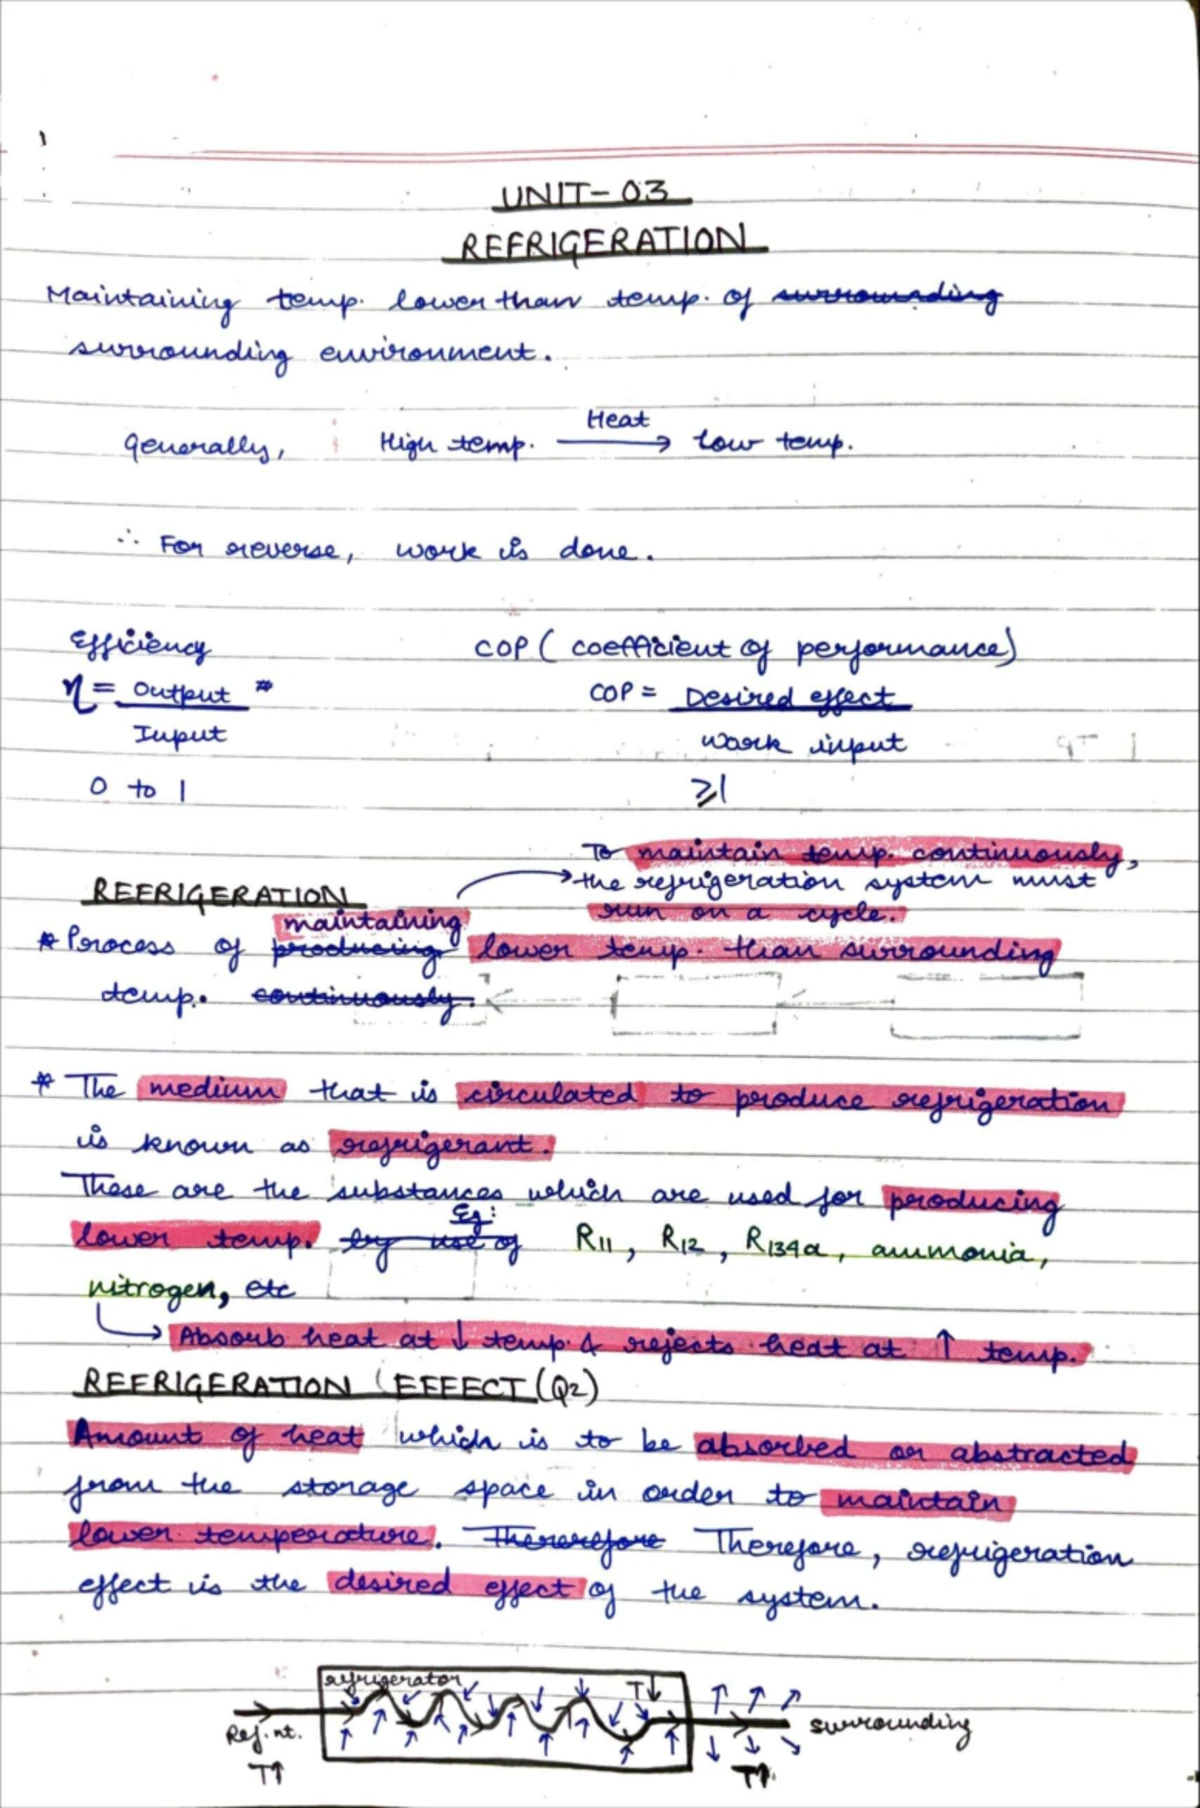 UNIT-03
REFRIGERATION
Maintaining temp. lower than temp. of surrounding
surrounding environment.
Generally, High temp. Heat → low temp.
∴ For reverse, work is done.
Efficiency COP (coefficient of performance)
η = Output / Input COP = Desired effect / work input
0 to 1 ⩾1
To maintain temp. continuously,
REFRIGERATION → the refrigeration system must
run on a cycle.
maintaining
* Process of producing lower temp. than surrounding
temp. continuously.
* The medium that is circulated to produce refrigeration
is known as refrigerant.
These are the substances which are used for producing
lower temp. by use of Eg: R11, R12, R134a, ammonia,
nitrogen, etc
↳ Absorb heat at ↓ temp. & rejects heat at ↑ temp.
REFRIGERATION EFFECT (Q2)
Amount of heat which is to be absorbed or abstracted
from the storage space in order to maintain
lower temperature. Thererefore Therefore, refrigeration
effect is the desired effect of the system.
refrigerator T↓
Ref.nt. surrounding
T↑ T↑